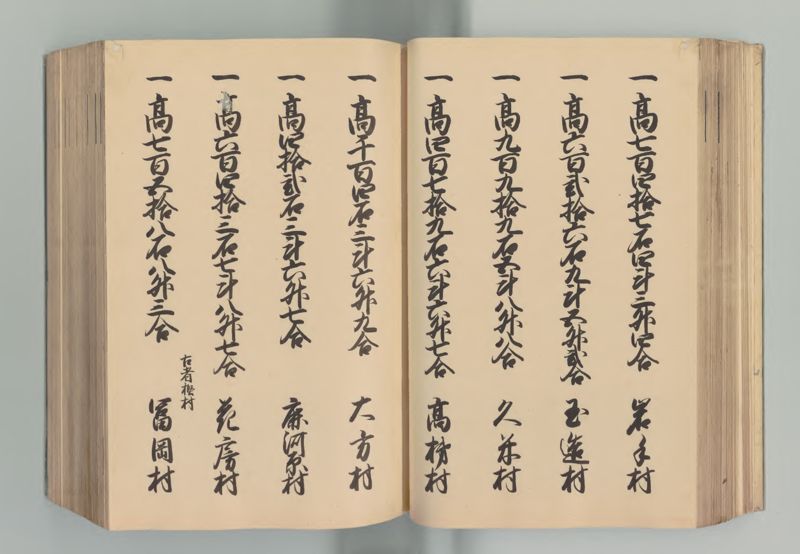 一 高七百四拾七石四斗三升四合 岩手村
一 高六百弐拾六石九斗五升弐合 玉造村
一 高九百九拾九石五斗八升八合 久米村
一 高四百七拾九石六斗六升七合 高村
一 高千百四石三斗六升九合 大方村
一 高四拾弐石三斗六升七合 河原村
一 高六百四拾三石七斗八升七合 花房村
古者村
一 高七百五拾八石八升三合 冨岡村